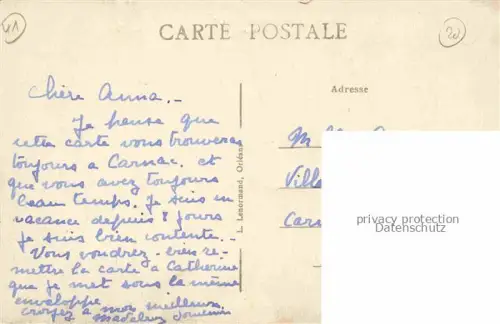 41
CARTE POSTALE
20
Adresse
Chère Anna. -
Je pense que
cette carte vous trouveras
toujours a Carnac. et
que vous avez toujours
beau temps. Je suis en
vacance depuis 8 jours
je suis bien contente. -
Vous voudrez - bien re-
mettre la carte à Catherine
que je met sous la même
enveloppe
croyez a mon meilleur
L. Lenormand, Orléans
M
Villa
Car
privacy protection
Datenschutz